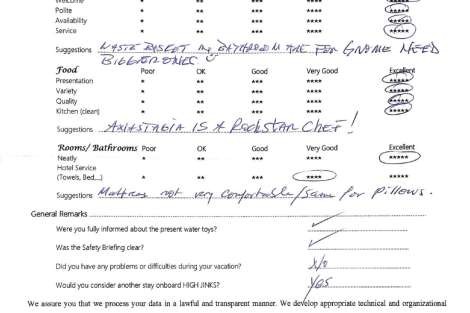 Welcome * ** *** **** *****
Polite * ** *** **** *****
Availability * ** *** **** *****
Service * ** *** **** *****
Suggestions WASTE BASKET IN BATHROOM ARE FOR GNOME NEED
BIGGER ONES
Food Poor OK Good Very Good Excellent
Presentation * ** *** **** *****
Variety * ** *** **** *****
Quality * ** *** **** *****
Kitchen (clean) * ** *** **** *****
Suggestions IS A ROCKSTAR CHEF!
Rooms/ Bathrooms Poor OK Good Very Good Excellent
Neatly * ** *** **** *****
Hotel Service
(Towels, Bed,...) * ** *** **** *****
Suggestions Mattress not very comfortable/same for pillows.
General Remarks
Were you fully informed about the present water toys? ✓
Was the Safety Briefing clear? ✓
Did you have any problems or difficulties during your vacation? No
Would you consider another stay onboard HIGH JINKS? YES
We assure you that we process your data in a lawful and transparent manner. We develop appropriate technical and organizational